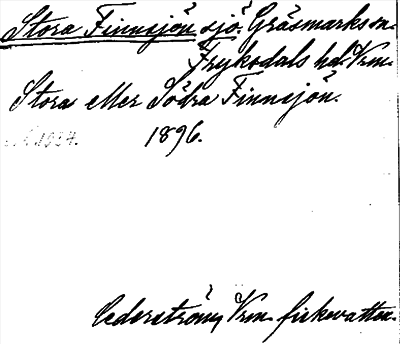 Stora Finnsjön sjö. Gräsmarks sn.
Frykdals hd. Vrm.
Stora eller Södra Finnsjön.
1896.
Cederström, Vrm. fiskevatten.